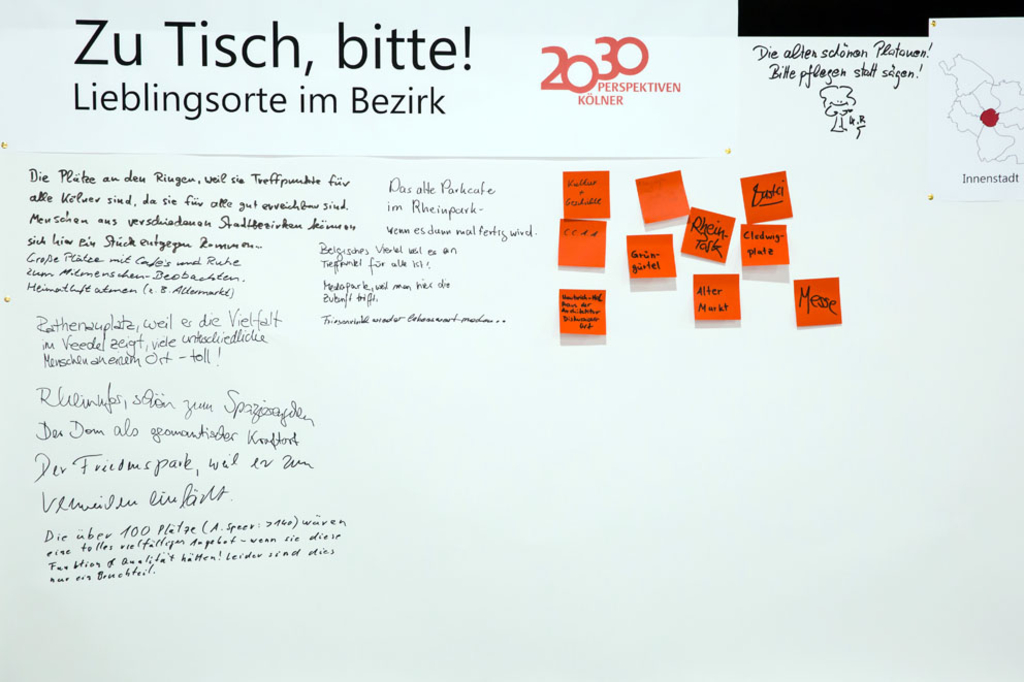 Zu Tisch, bitte!
Lieblingsorte im Bezirk
2030
PERSPEKTIVEN
KÖLNER
Die alten schönen Platanen!
Bitte pflegen statt sägen!
Innenstadt
Die Plätze an den Ringen, weil sie Treffpunkte für
alle Kölner sind, da sie für alle gut erreichbar sind.
Menschen aus verschiedenen Stadtbezirken können
sich hier ein Stück entgegen kommen...
Große Plätze mit Cafés und Ruhe
zum Mitmenschen-Beobachten.
Heimatluft atmen (z.B. Altermarkt)
Rathenauplatz, weil er die Vielfalt
im Veedel zeigt, viele unterschiedliche
Menschen an einem Ort - toll!
Rheinufer, schön zum Spazierengehen
Der Dom als geomantischer Kraftort
Der Friedenspark, weil er zum
Verweilen einlädt.
Die über 100 Plätze (A. Speer: >140) wären
eine tolles vielfältiges Angebot - wenn sie diese
Funktion & Qualität hätten! Leider sind dies
nur ein Bruchteil.
Das alte Parkcafe
im Rheinpark-
wenn es dann mal fertig wird.
Belgisches Viertel weil es ein
Treffpunkt für alle ist!
Mediapark, weil man hier die
Zukunft trifft.
wieder lebenswert machen...
Kultur
+
Geschichte
Rhein-
Grün-
gürtel
Clodwig-
platz
Alter
Markt
Messe
Haus der
Architektur